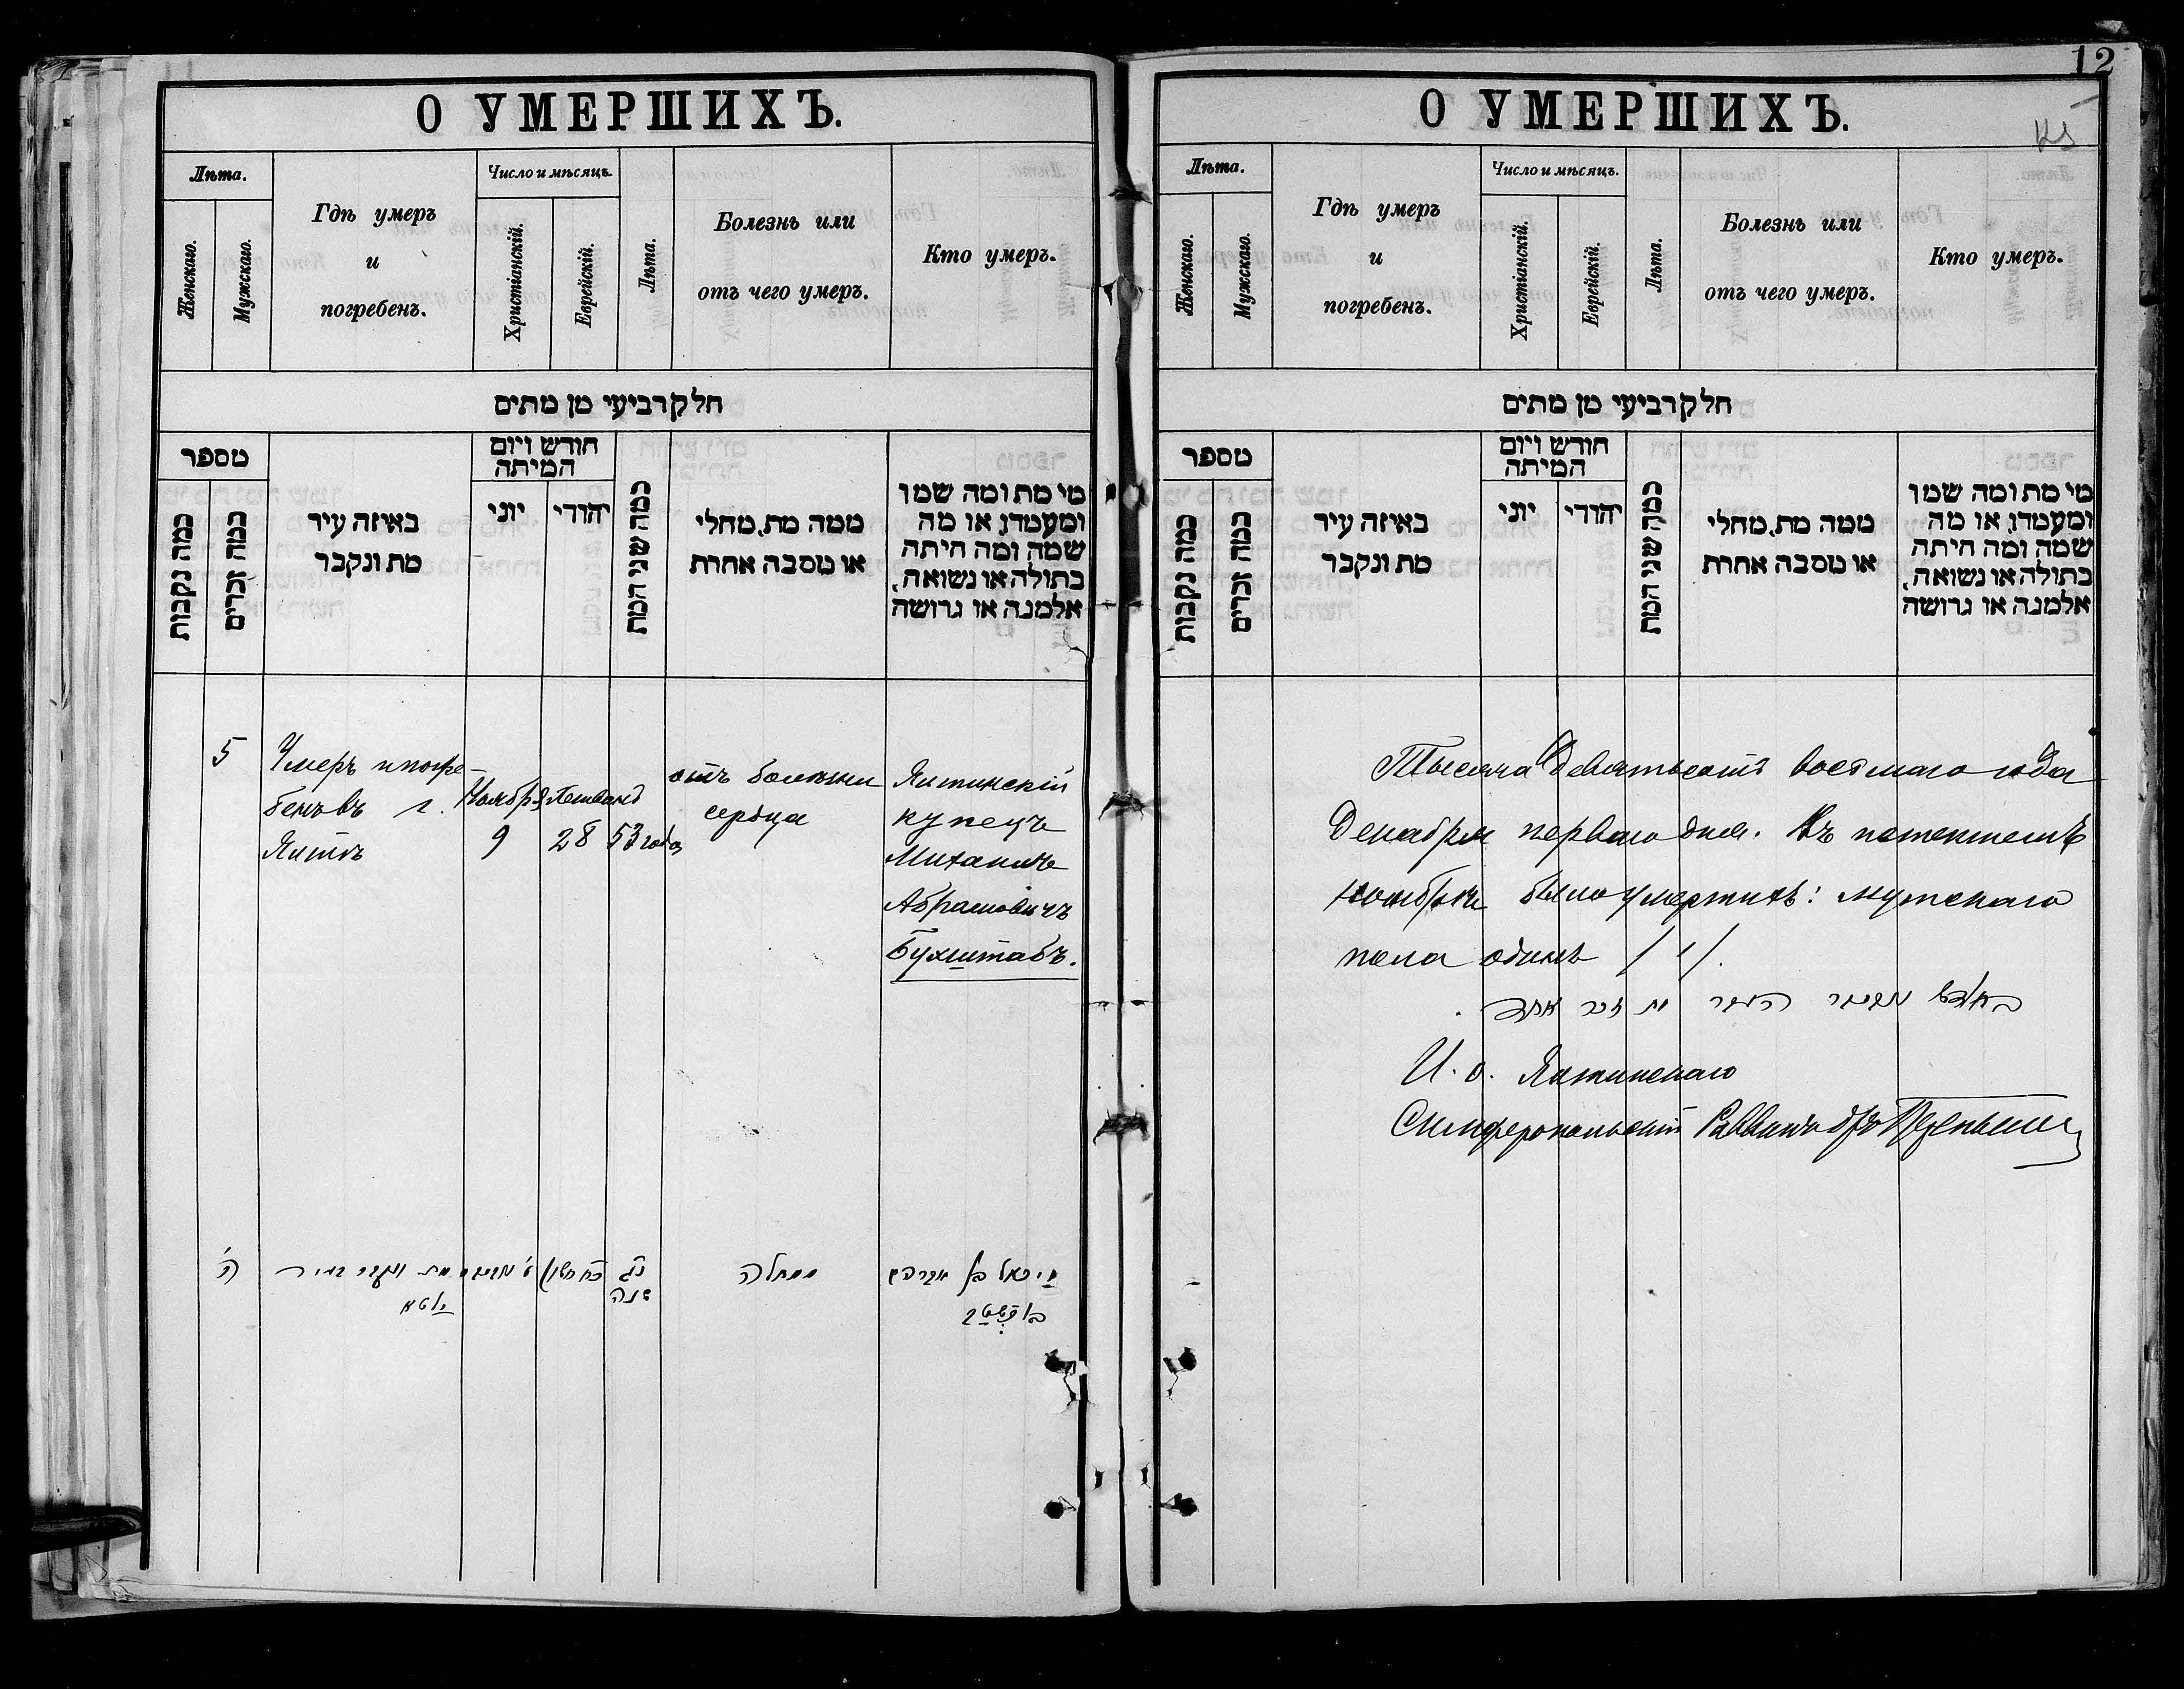 О УМЕРШИХЪ.
Лѣта.
Женскаго.
Мужскаго.
Гдѣ умеръ
и
погребенъ.
Число и мѣсяцъ.
Христіанскій.
Еврейскій.
Лѣта.
Болезнь или
отъ чего умеръ.
Кто умеръ.
חלק רביעי מן מתים
מספר
כמה נקבות
כמה זכרים
באיזה עיר
מת ונקבר
חודש ויום
המיתה
יוני
יהודי
כמה שני המת
ממה מת, מחלי
או מסבה אחרת
מי מת ומה שמו
ומעמדו, או מה
שמה ומה היתה
בתולה או נשואה,
אלמנה או גרושה
5
Умеръ и погре-
бенъ въ г.
Ялтѣ
Ноябрь
9
28
53 года
отъ болезни
сердца
Ялтинскій
купецъ
Михаилъ
Абрамовичъ
Бухштабъ.
ה'
מת ונקבר בעיר
יאלטא
כח חשון
נג
שנה
ממחלה
מיכאל בן אברהם
12
О УМЕРШИХЪ.
Лѣта.
Женскаго.
Мужскаго.
Гдѣ умеръ
и
погребенъ.
Число и мѣсяцъ.
Христіанскій.
Еврейскій.
Лѣта.
Болезнь или
отъ чего умеръ.
Кто умеръ.
חלק רביעי מן מתים
מספר
כמה נקבות
כמה זכרים
באיזה עיר
מת ונקבר
חודש ויום
המיתה
יוני
יהודי
כמה שני המת
ממה מת, מחלי
או מסבה אחרת
מי מת ומה שמו
ומעמדו, או מה
שמה ומה היתה
בתולה או נשואה,
אלמנה או גרושה
Тысяча девятьсотъ восьмаго года
Декабря перваго дня. Въ истекшемъ
ноябрѣ было умершихъ: мужскаго
пола одинъ /1/.
בחודש נאוועמבר העבר מת זכר אחד.
И. о. Ялтинскаго
Симферопольскій Раввинъ